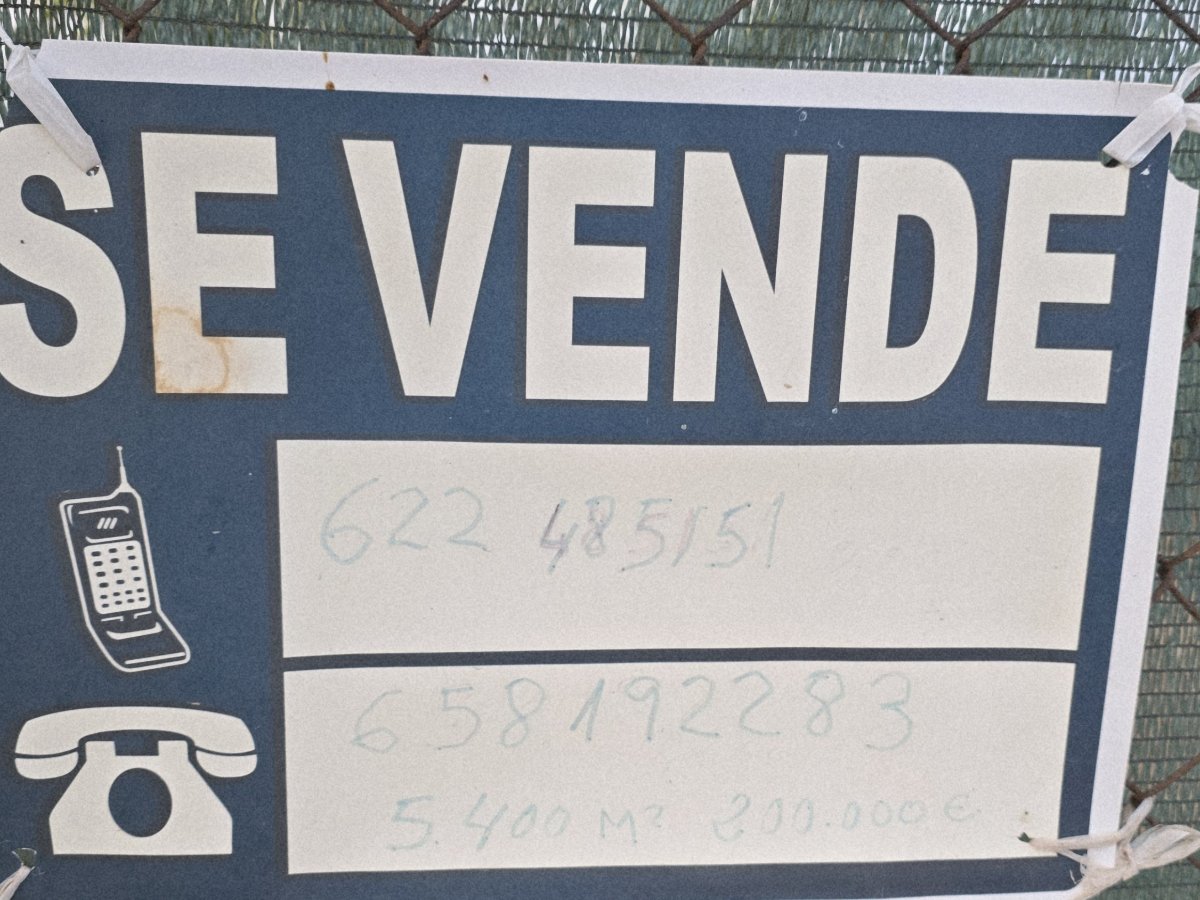 SE VENDE
622 485151
658192283
5.400 M² 200.000€